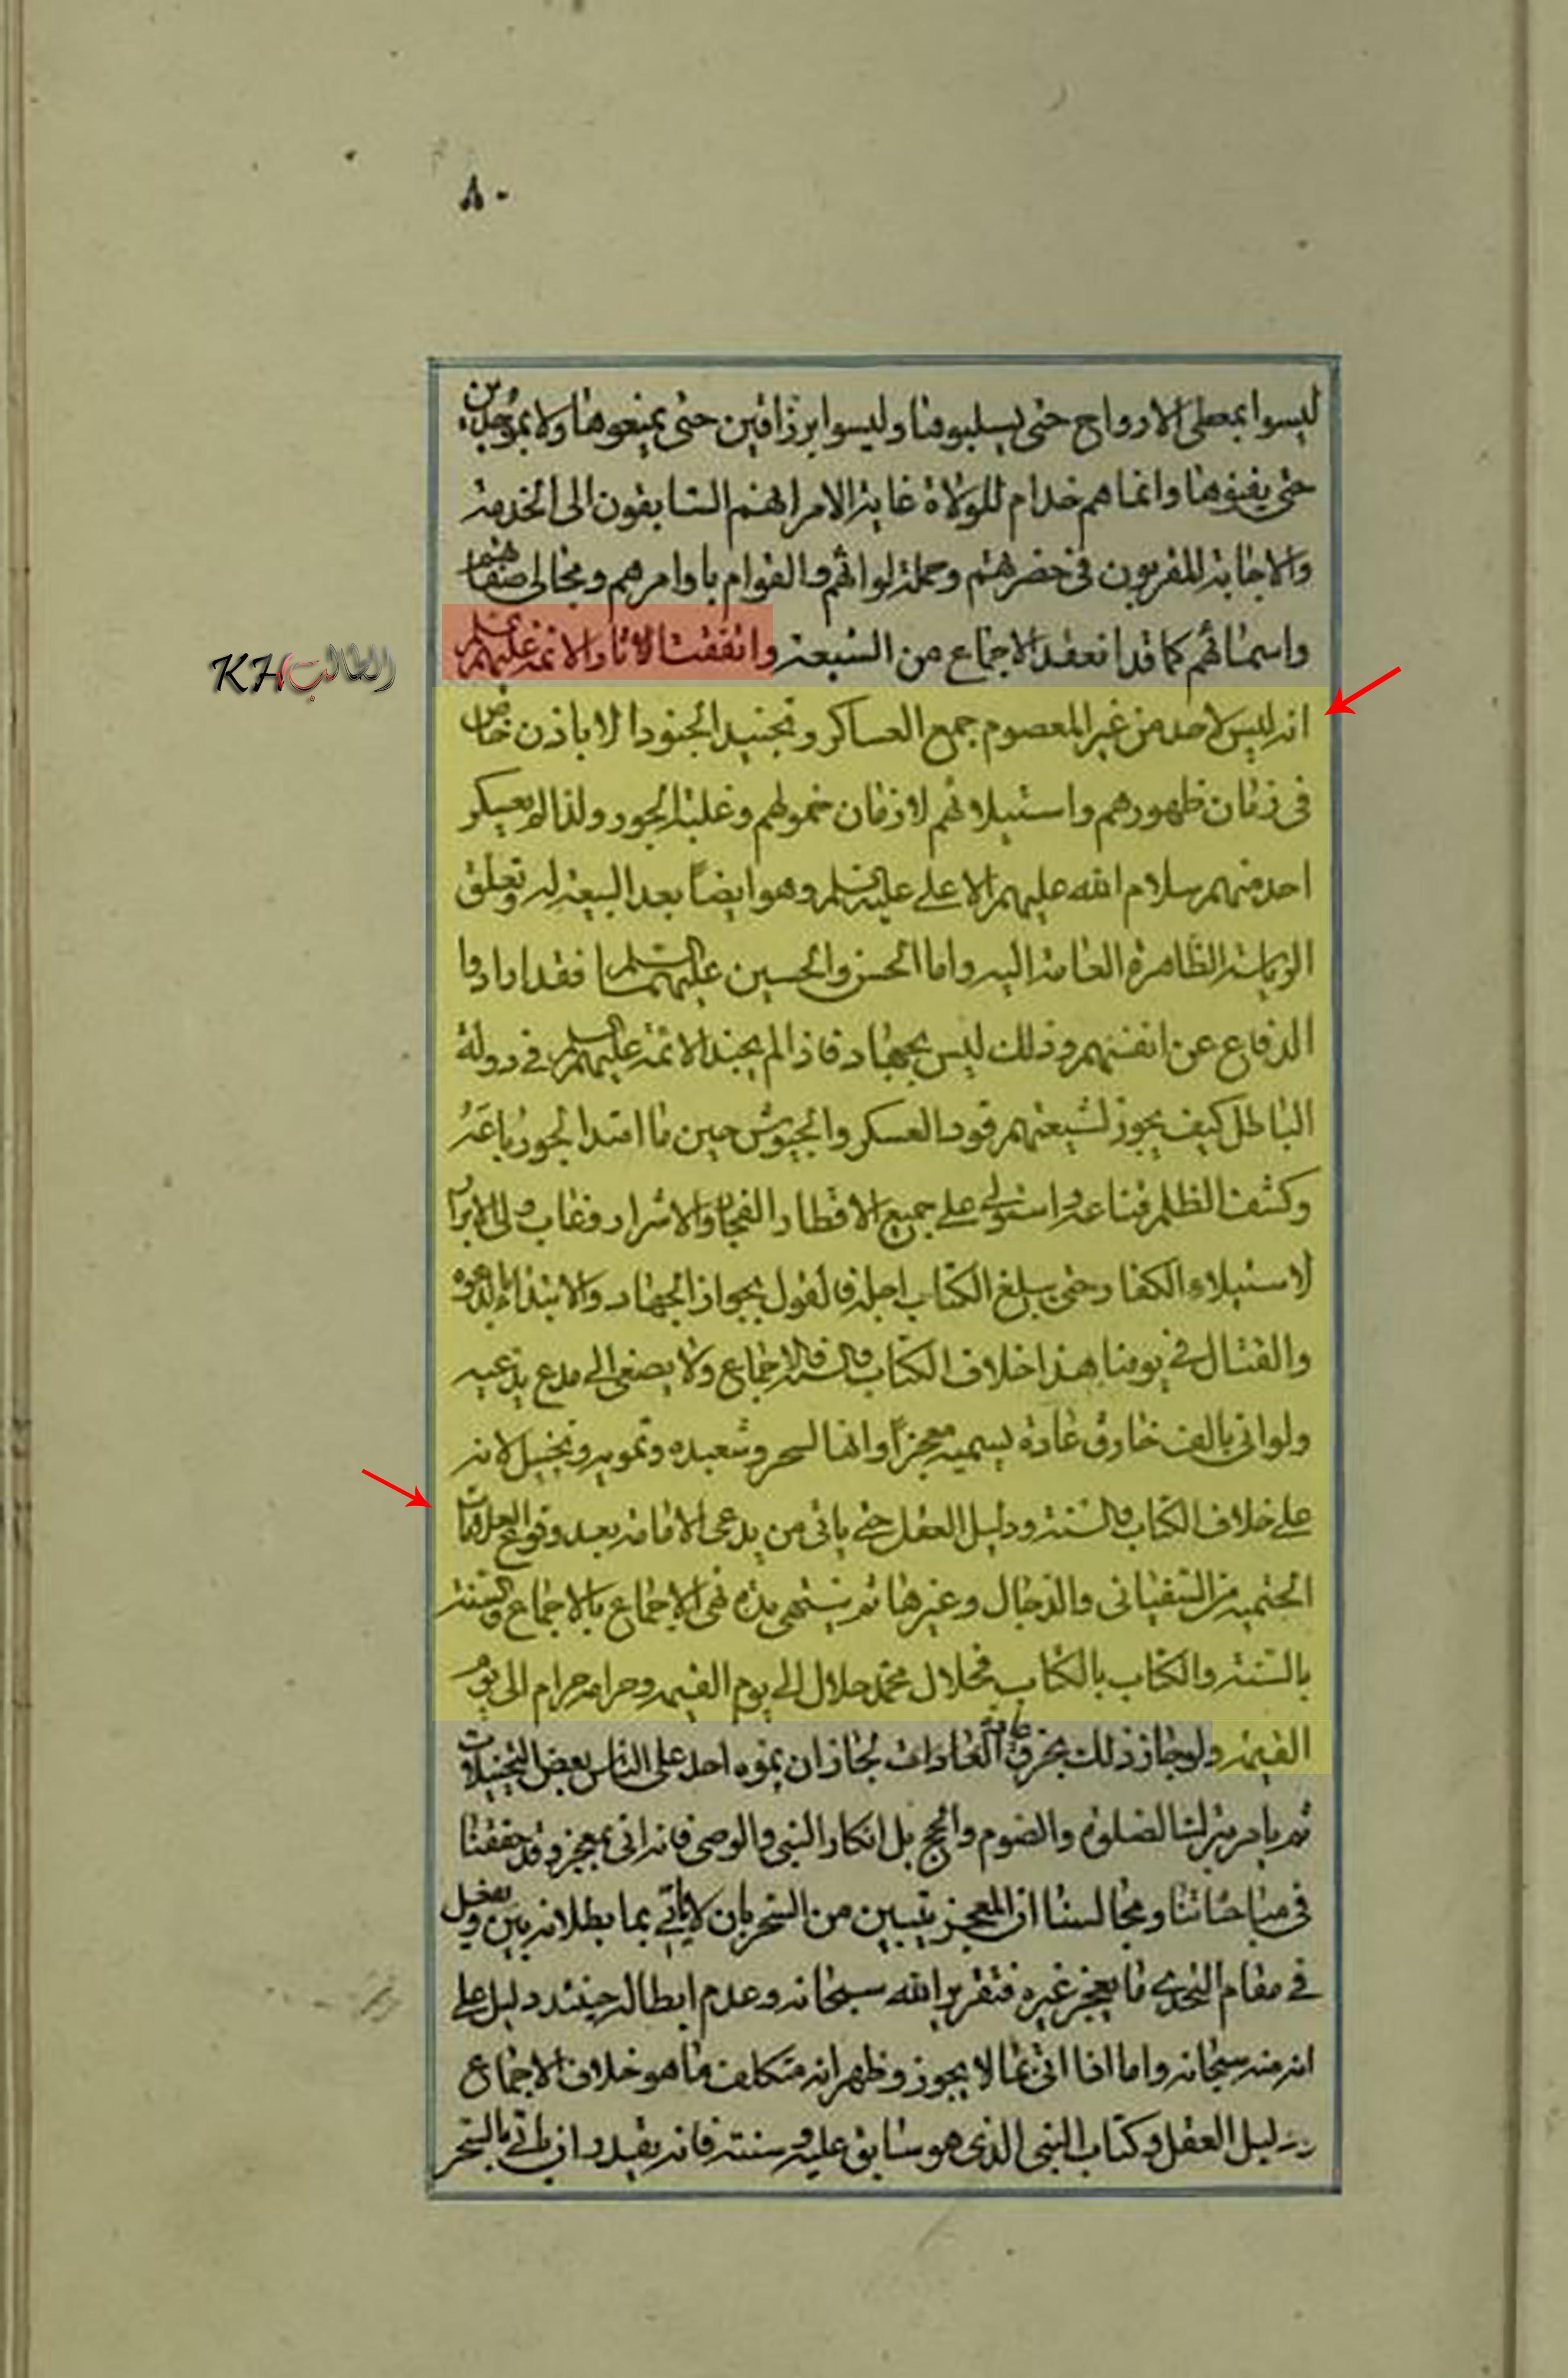 ٨٠
ليسوا بمعطي الارواح حتى يسلبوننا وليسوا برزاقين حتى يمنعوها ولا بموجدين
حتى يفنوها وانما هم خدام للولاة غاية الامر انهم السابقون الى الخدمة
والاجابة المقربون في حضرهتم وحملة لوائهم والقوام باوامرهم ومجالى صفاتهم
واسمائهم كما قد انعقد الاجماع من الشيعة واتفقت الاثار والائمة عليهم السلم
انه ليس لاحد من غير المعصوم جمع العساكر وتجنيد الجنود الا باذن خاص
في زمان ظهورهم واستيلائهم لا زمان خمولهم وغلبة الجور ولذا لم يعسكر
احد منهم سلام الله عليهم الا علي عليه السلم وهو ايضاً بعد البيعة له وتعلق
الرياسة الظاهرة العامة اليه واما الحسن والحسين عليهما السلم فقد ارادوا
الدفاع عن انفسهم وذلك ليس بجهاد فاذا لم يجند الائمة عليهم السلم في دولة
الباطل كيف يجوز لشيعتهم قود العسكر والجيوش حين ما امتد الجور باعه
وكشف الظلم قناعه واستولى على جميع الاقطار الفجار والاشرار وغاب ولى الابرار
لاستيلاء الكفار حتى يبلغ الكتاب اجله فالقول بجواز الجهاد والابتداء بالدعوة
والقتال في يومنا هذا خلاف الكتاب والسنة والاجماع ولا يصغى الى مدع يدعيه
ولو اتى بالف خارق عادة يسميه معجزاً وانها لسحر وشعبده وتمويه وتخييل لانه
على خلاف الكتاب والسنة ودليل العقل حتى ياتى من يدعى الامامة بعد وقوع العلامات
الحتمية من السفياني والدجال وغيرها ثم ينتهى بذه نهى الاجماع بالاجماع والسنة
بالسنة والكتاب بالكتاب فحلال محمد حلال الى يوم القيمه وحرامه حرام الى يوم
القيمة ولو جاز ذلك بخرق عامة العادات لجاز ان يموه احد على الناس بعض التخييلات
ثم يامر بترك الصلوة والصوم والحج بل انكار النبي والوصي فانه اتى بمعجز وقد حققنا
في مباحثاتنا ومجالسنا ان المعجز يتبين من السحر بان لا ياتي بما بطلانه بين ويفعل
في مقام التحدي ما يعجز غيره فتقرير الله سبحانه وعدم ابطاله حينئذ دليل على
انه منه سبحانه واما اذا اتى بما لا يجوز وظهر انه متكلف ما هو خلاف الاجماع
ودليل العقل وكتاب النبي الذي هو سابق عليه وسنته فانه يقيد وان ياتي بالسحر
KH الطالب